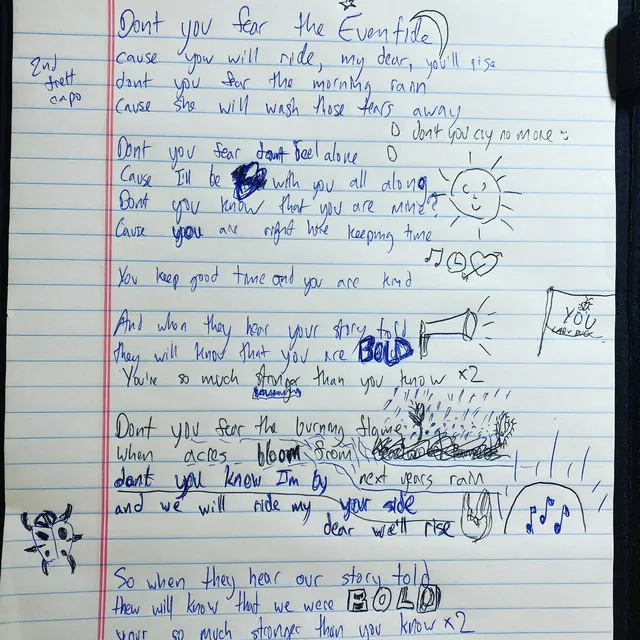 Dont you fear the Eventide
cause you will ride, my dear, you'll rise
2nd
frett
capo
dont you fear the morning rain
cause she will wash those tears away
don't you cry no more
Dont you fear dont feel alone
Cause I'll be with you all along
Dont you know that you are mine?
Cause you are right here keeping time
You keep good time and you are kind
And when they hear your story told
they will know that you are BOLD
You're so much stronger than you know x2
YOU
Dont you fear the burning flame
when acres bloom from
next years rain
dont you know I'm by
your side
and we will ride my
dear we'll rise
So when they hear our story told
thew will know that we were BOLD
your so much stronger than you know x2